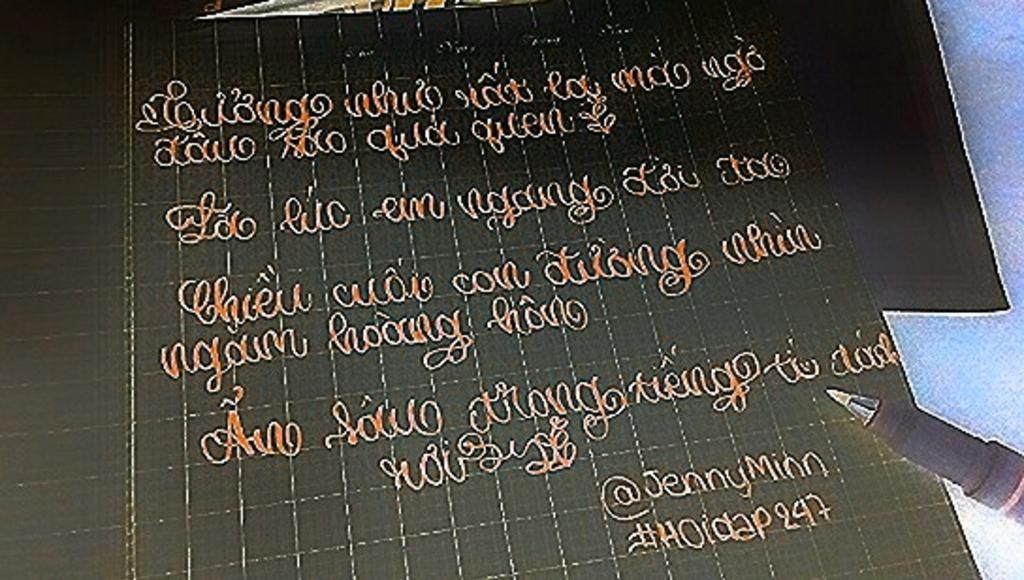 Tưởng như rất lạ mà ngờ
đâu sao quá quen
Là lúc em ngang đời ta
Chiều cuối con đường nhìn
ngắm hoàng hôn
Ẩn sâu trong tiếng tí tách
rơi
@JennyMinn
#HOidap247